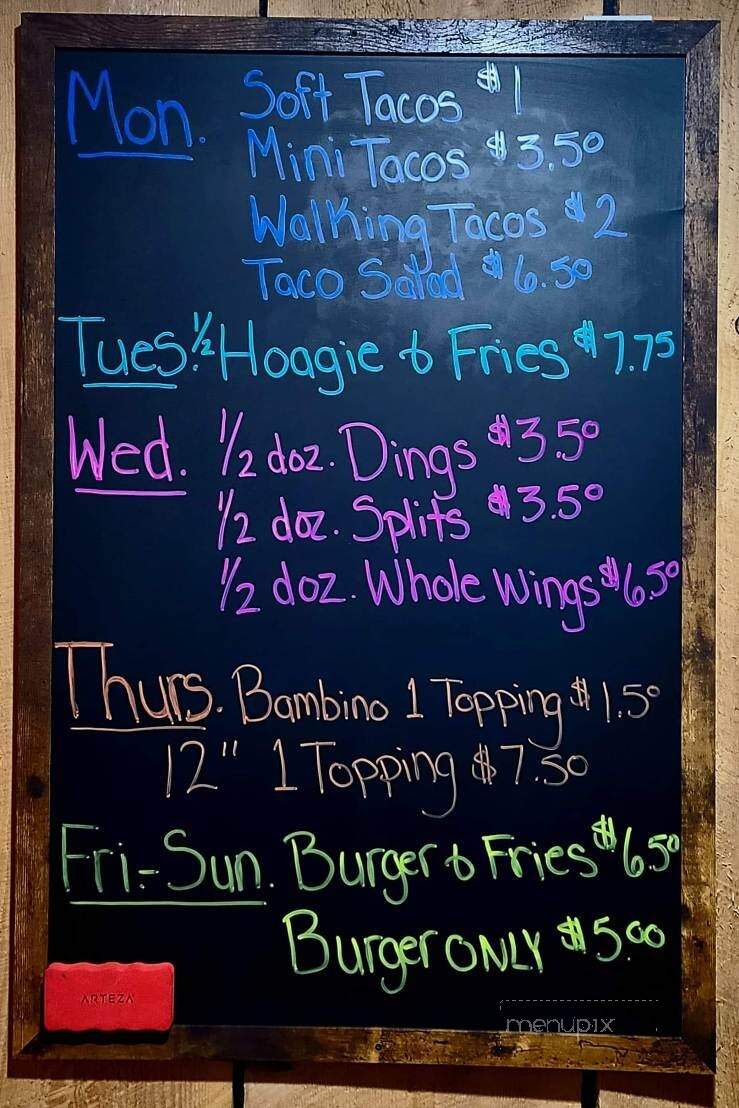 Mon. Soft Tacos $1
Mini Tacos $3.50
Walking Tacos $2
Taco Salad $6.50
Tues. ½ Hoagie & Fries $7.75
Wed. ½ doz. Dings $3.50
½ doz. Splits $3.50
½ doz. Whole Wings $6.50
Thurs. Bambino 1 Topping $1.50
12" 1 Topping $7.50
Fri-Sun. Burger & Fries $6.50
Burger ONLY $5.00
ARTEZA
menupix